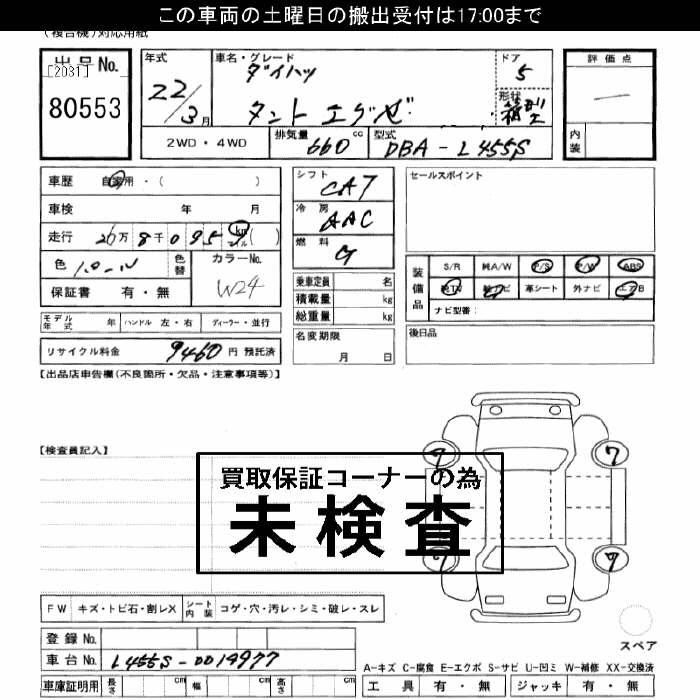 この車両の土曜日の搬出受付は17:00まで
(複合機)対応用紙
出品No.
[2031]
80553
年式
22/3月
車名・グレード
ダイハツ
タント エグゼ
ドア
5
形状
箱型
評価点
内装
2WD・4WD
排気量 660 cc
型式 DBA-L455S
車歴 自家用・( )
車検 年 月
走行 26万8千095 km マイル ( )
色 パール
色替
カラーNo.
W24
保証書 有・無
シフト
CAT
冷房
AAC
燃料
G
乗車定員 名
積載量 kg
総重量 kg
セールスポイント
装備品
S/R 純A/W P/S P/W ABS
純TV 純ナビ 革シート 外ナビ エアB
ナビ型番:
モデル年式 年 ハンドル 左・右 ディーラー・並行
名変期限
月 日
後日品
リサイクル料金 9460 円 預託済
【出品店車告欄(不良箇所・欠品・注意事項等)】
【検査員記入】
買取保証コーナーの為
未検査
7
7
7
7
FW キズ・トビ石・割レX シート内装 コゲ・穴・汚レ・シミ・破レ・スレ
登録No.
車台No. L455S-0014977
スペア
A-キズ C-腐食 E-エクボ S-サビ U-凹ミ W-補修 XX-交換済
車庫証明用 長さ cm 幅 cm 高さ cm
工具 有・無 ジャッキ 有・無